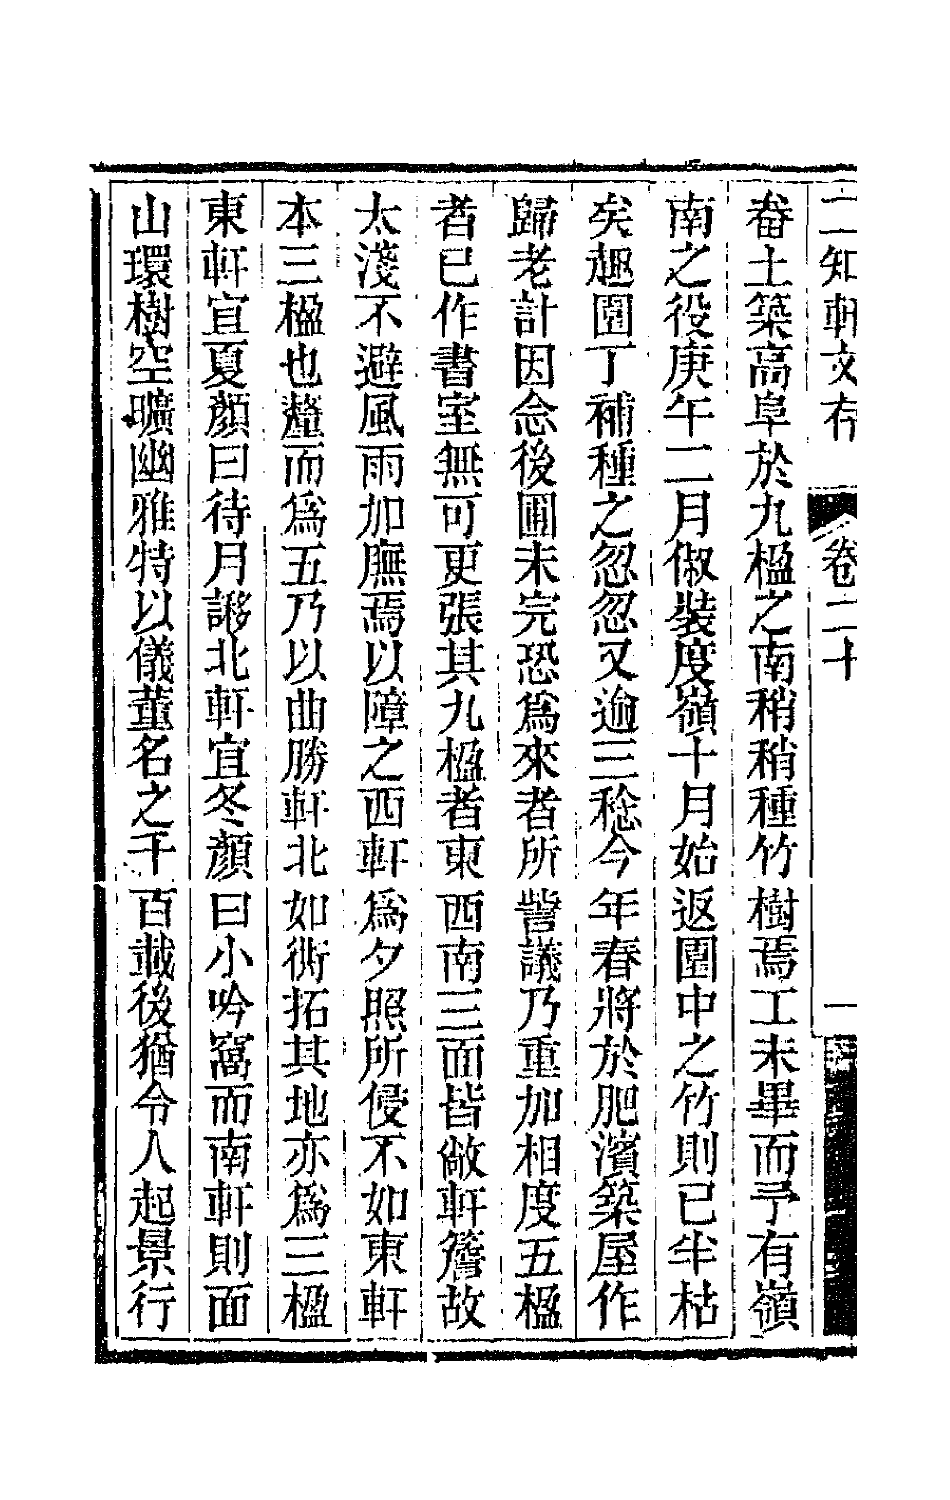 二知軒文存 卷二十 一
畚土築高阜於九楹之南稍稍種竹樹焉工未畢而予有嶺
南之役庚午二月俶裝度嶺十月始返園中之竹則已半枯
矣趣園丁補種之忽忽又逾三稔今年春將於肥濱築屋作
歸老計因念後圃未完恐爲來者所訾議乃重加相度五楹
者已作書室無可更張其九楹者東西南三面皆敞軒簷故
太淺不避風雨加廡焉以障之西軒爲夕照所侵不如東軒
本三楹也釐而爲五乃以曲勝軒北如衖拓其地亦爲三楹
東軒宜夏顏曰待月謻北軒宜冬顏曰小吟窩而南軒則面
山環樹空曠幽雅特以儀董名之千百載後猶令人起景行